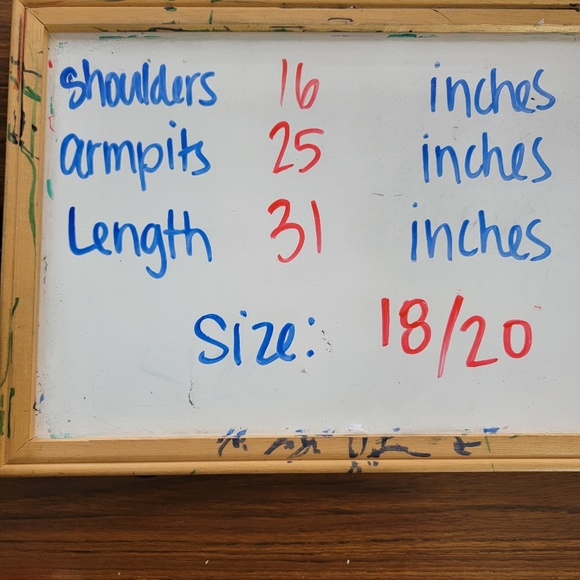 shoulders 16 inches
armpits 25 inches
Length 31 inches
Size: 18/20